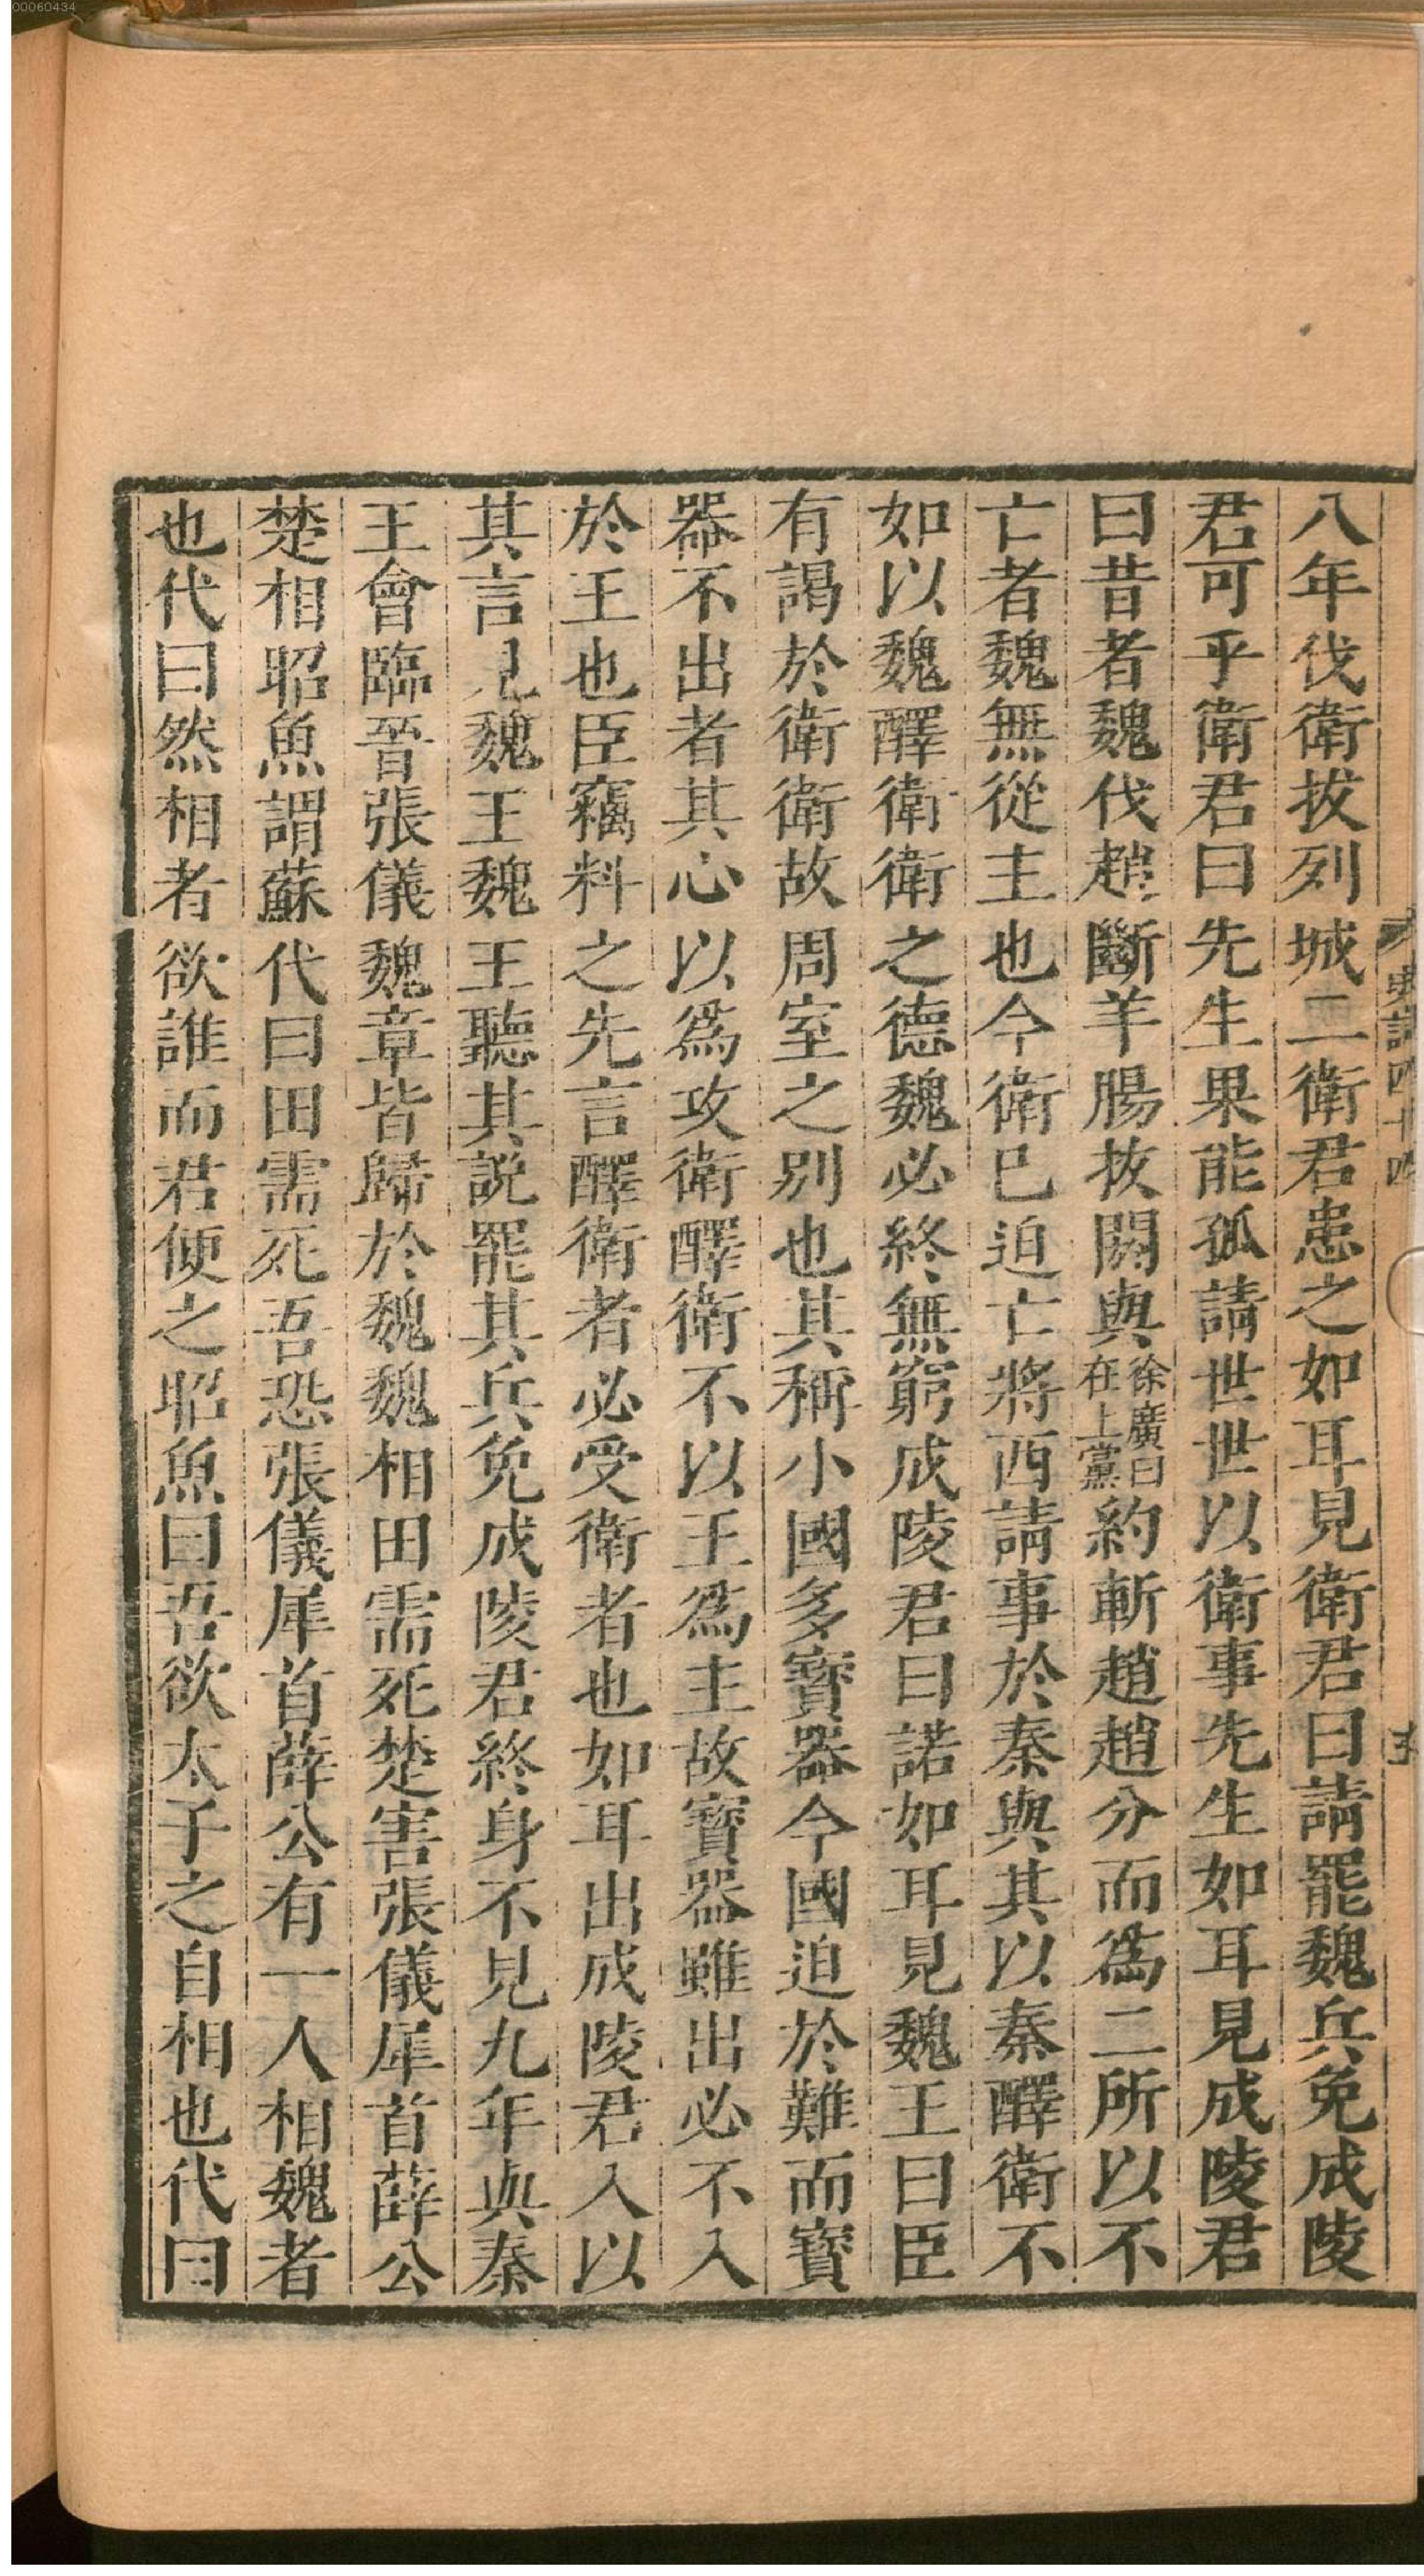 00060434
史記四十四
五
八年伐衛拔列城二衛君患之如耳見衛君曰請罷魏兵免成陵
君可乎衛君曰先生果能孤請世世以衛事先生如耳見成陵君
曰昔者魏伐趙斷羊腸拔閼與徐廣曰在上黨約斬趙趙分而爲二所以不
亡者魏無從主也今衛已迫亡將西請事於秦與其以秦醳衛不
如以魏醳衛衛之德魏必終無窮成陵君曰諾如耳見魏王曰臣
有謁於衛衛故周室之别也其稱小國多寶器今國迫於難而寶
器不出者其心以爲攻衛醳衛不以王爲主故寶器雖出必不入
於王也臣竊料之先言醳衛者必受衛者也如耳出成陵君入以
其言見魏王魏王聽其説罷其兵免成陵君終身不見九年與秦
王會臨晉張儀魏章皆歸於魏魏相田需死楚害張儀犀首薛公
楚相昭魚謂蘇代曰田需死吾恐張儀犀首薛公有一人相魏者
也代曰然相者欲誰而君便之昭魚曰吾欲太子之自相也代曰